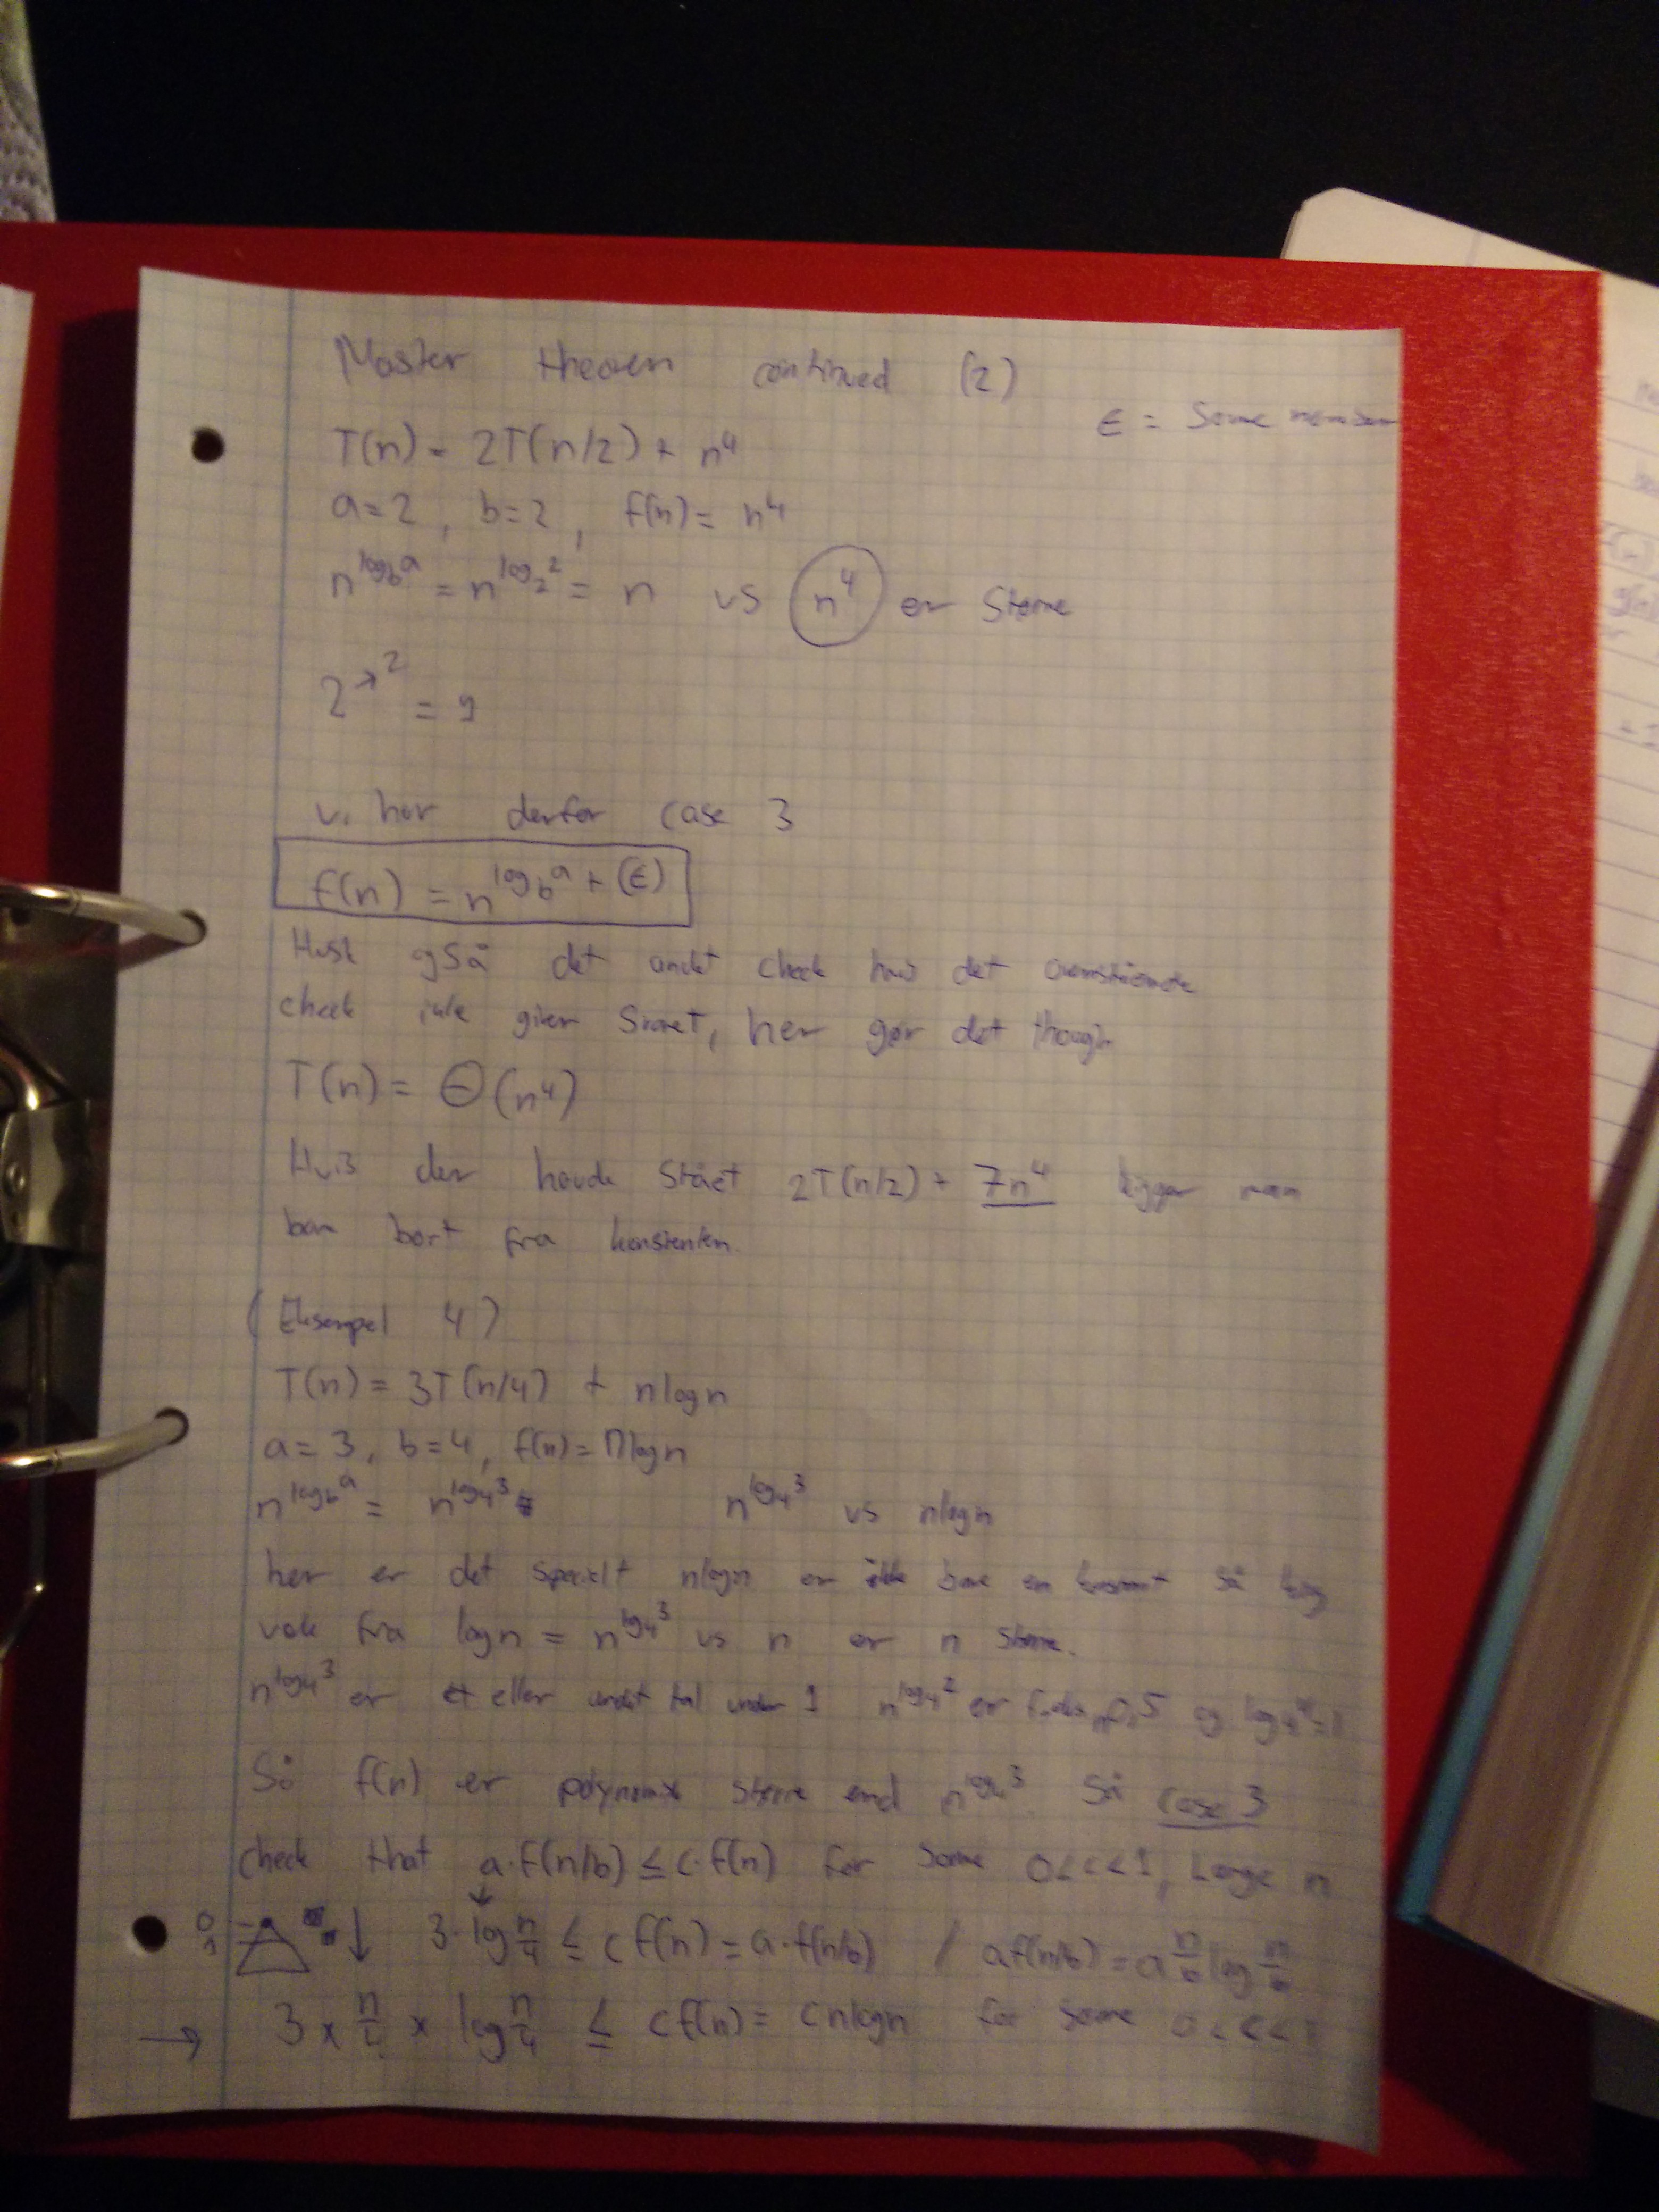 Master theorem continued (2)
ϵ = Some
T(n) = 2T(n/2) + n⁴
a=2, b=2, f(n)= n⁴
n^log_b a = n^log_2 2 = n vs n⁴ er større
2→² = 1
vi har derfor case 3
f(n) = n^log_b a + (ϵ)
Husk også det andet check hvis det ovenstående
check ikke giver svaret, her gør det though
T(n) = Θ(n⁴)
Hvis der havde stået 2T(n/2) + 7n⁴ kigger man
bare bort fra konstanten.
(Eksempel 4)
T(n) = 3T(n/4) + nlogn
a=3, b=4, f(n)= nlogn
n^log_b a = n^log_4 3 n^log_4 3 vs nlogn
her er det specielt nlogn er ikke bare en konstant så kig
væk fra logn = n^log_4 3 vs n er n større.
n^log_4 3 er et eller andet tal under 1 n^log_4 2 er 0,5 og log_4 4=1
Så f(n) er polynomisk større end n^log_4 3. Så case 3
check that a·f(n/b) ≤ c·f(n) for some 0<c<1, Large n
0 1 ↓ 3·log n/4 ≤ c f(n) = a·f(n/b) / af(n/b) = a n/b log n/b
→ 3 x n/4 x log n/4 ≤ cf(n) = cnlogn for some 0<c<1